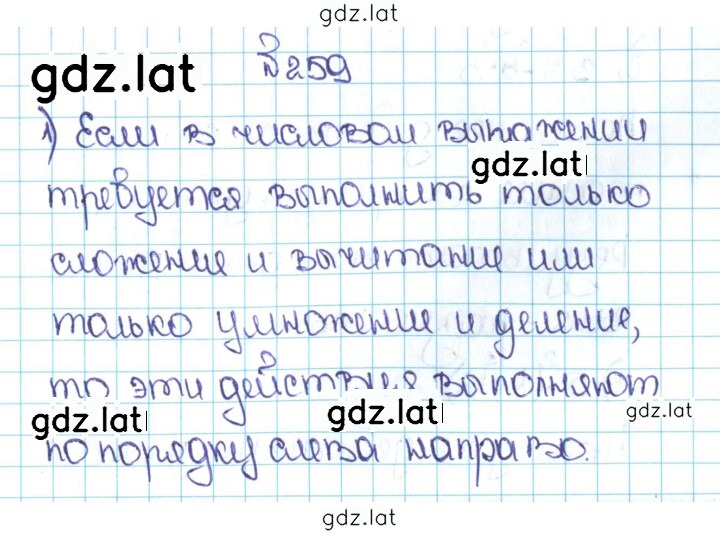 gdz.lat
gdz.lat
№259
1) Если в числовом выражении
gdz.lat
требуется выполнить только
сложение и вычитание или
только умножение и деление,
то эти действия выполняют
gdz.lat
gdz.lat
gdz.lat
по порядку слева направо.
gdz.lat